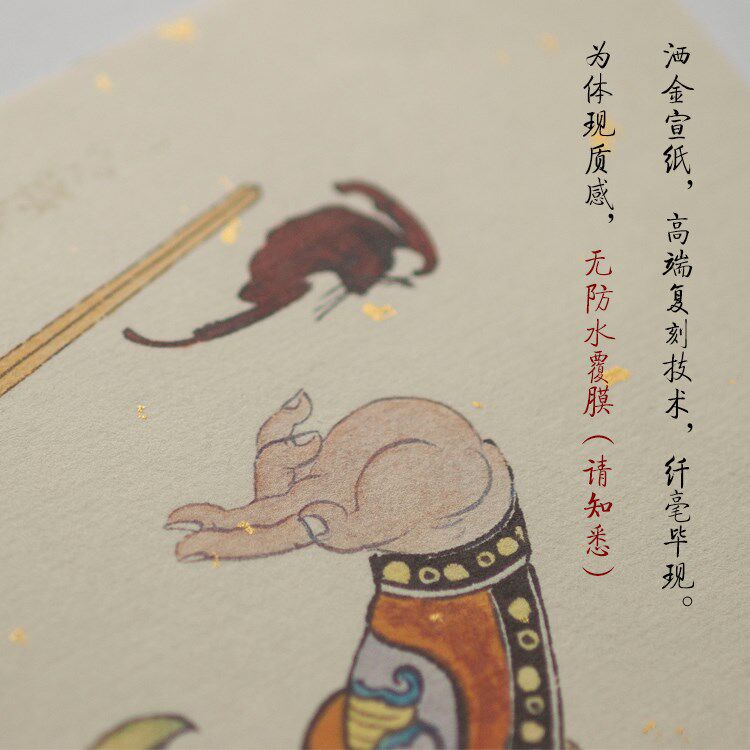 洒金宣纸，高端复刻技术，纤毫毕现。
为体现质感，无防水覆膜（请知悉）